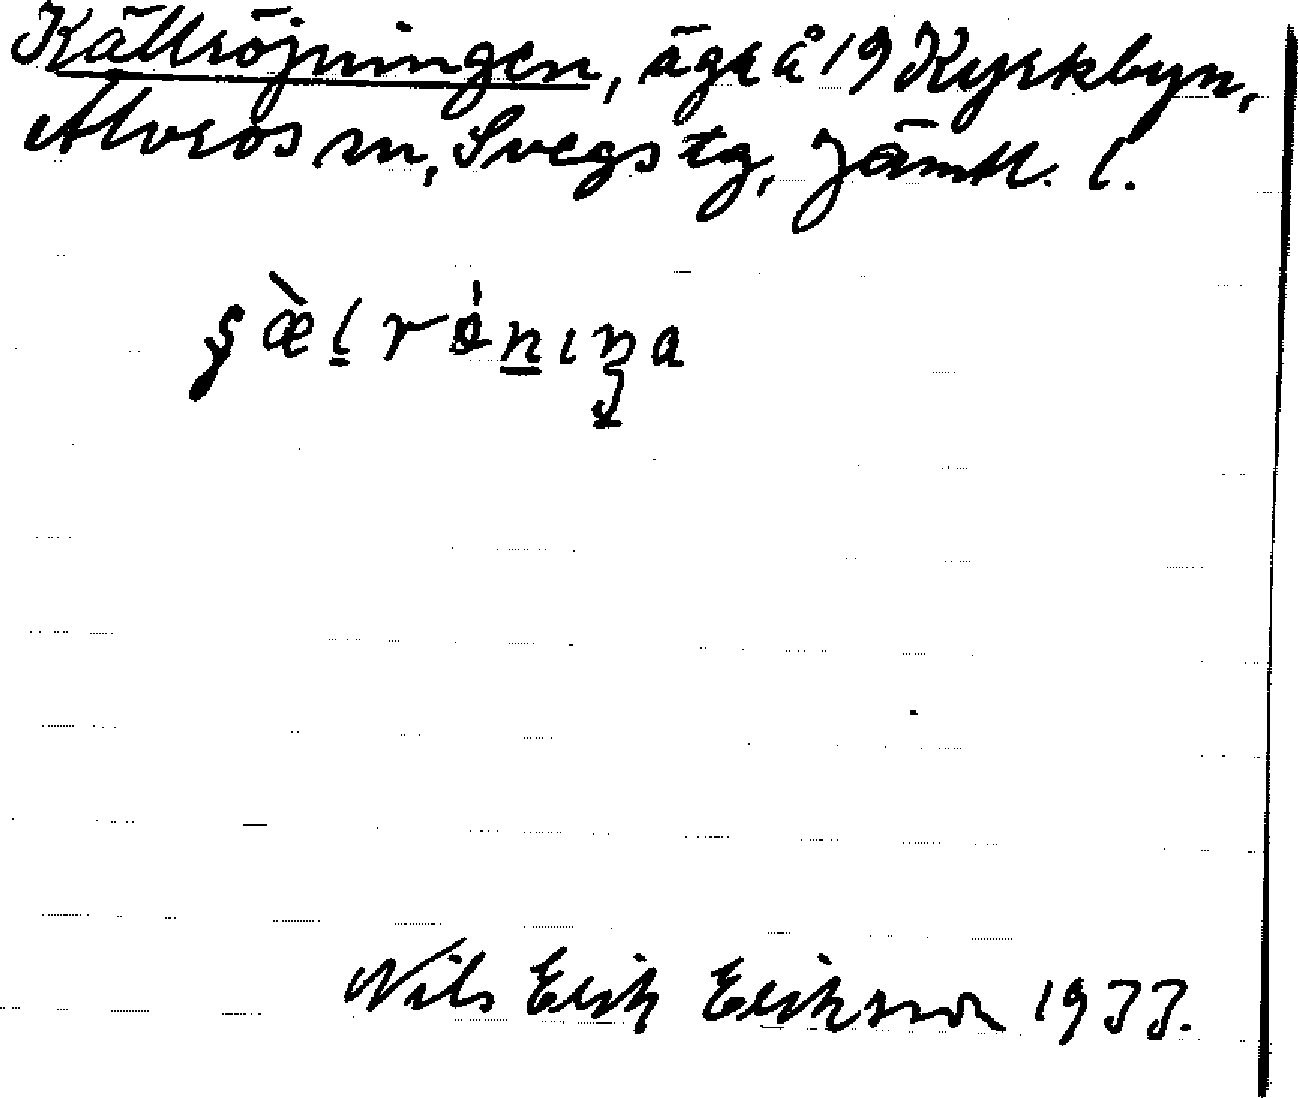 Källröjningen, äga å 19 Kyrkbyn,
Älvros sn, Svegs tg, Jämtl. l.
Nils Erik Eriksson 1933.